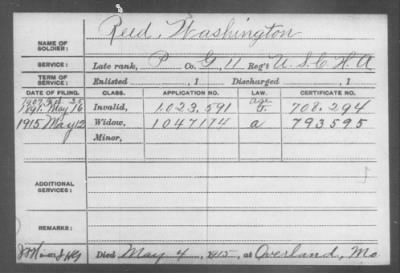 NAME OF SOLDIER: Reed, Washington
SERVICE: Late rank, P Co. G, 11 Reg't U.S.C.H.A
TERM OF SERVICE: Enlisted , 1 Discharged , 1
DATE OF FILING. CLASS. APPLICATION NO. LAW. CERTIFICATE NO.
1907 Feb 25 age
1891 May 16 Invalid, 1.023.591 708.294
1915 May 12 Widow, 1047174 a 793595
Minor,
ADDITIONAL SERVICES:
REMARKS:
Died May 4, 1915, at Overland, Mo